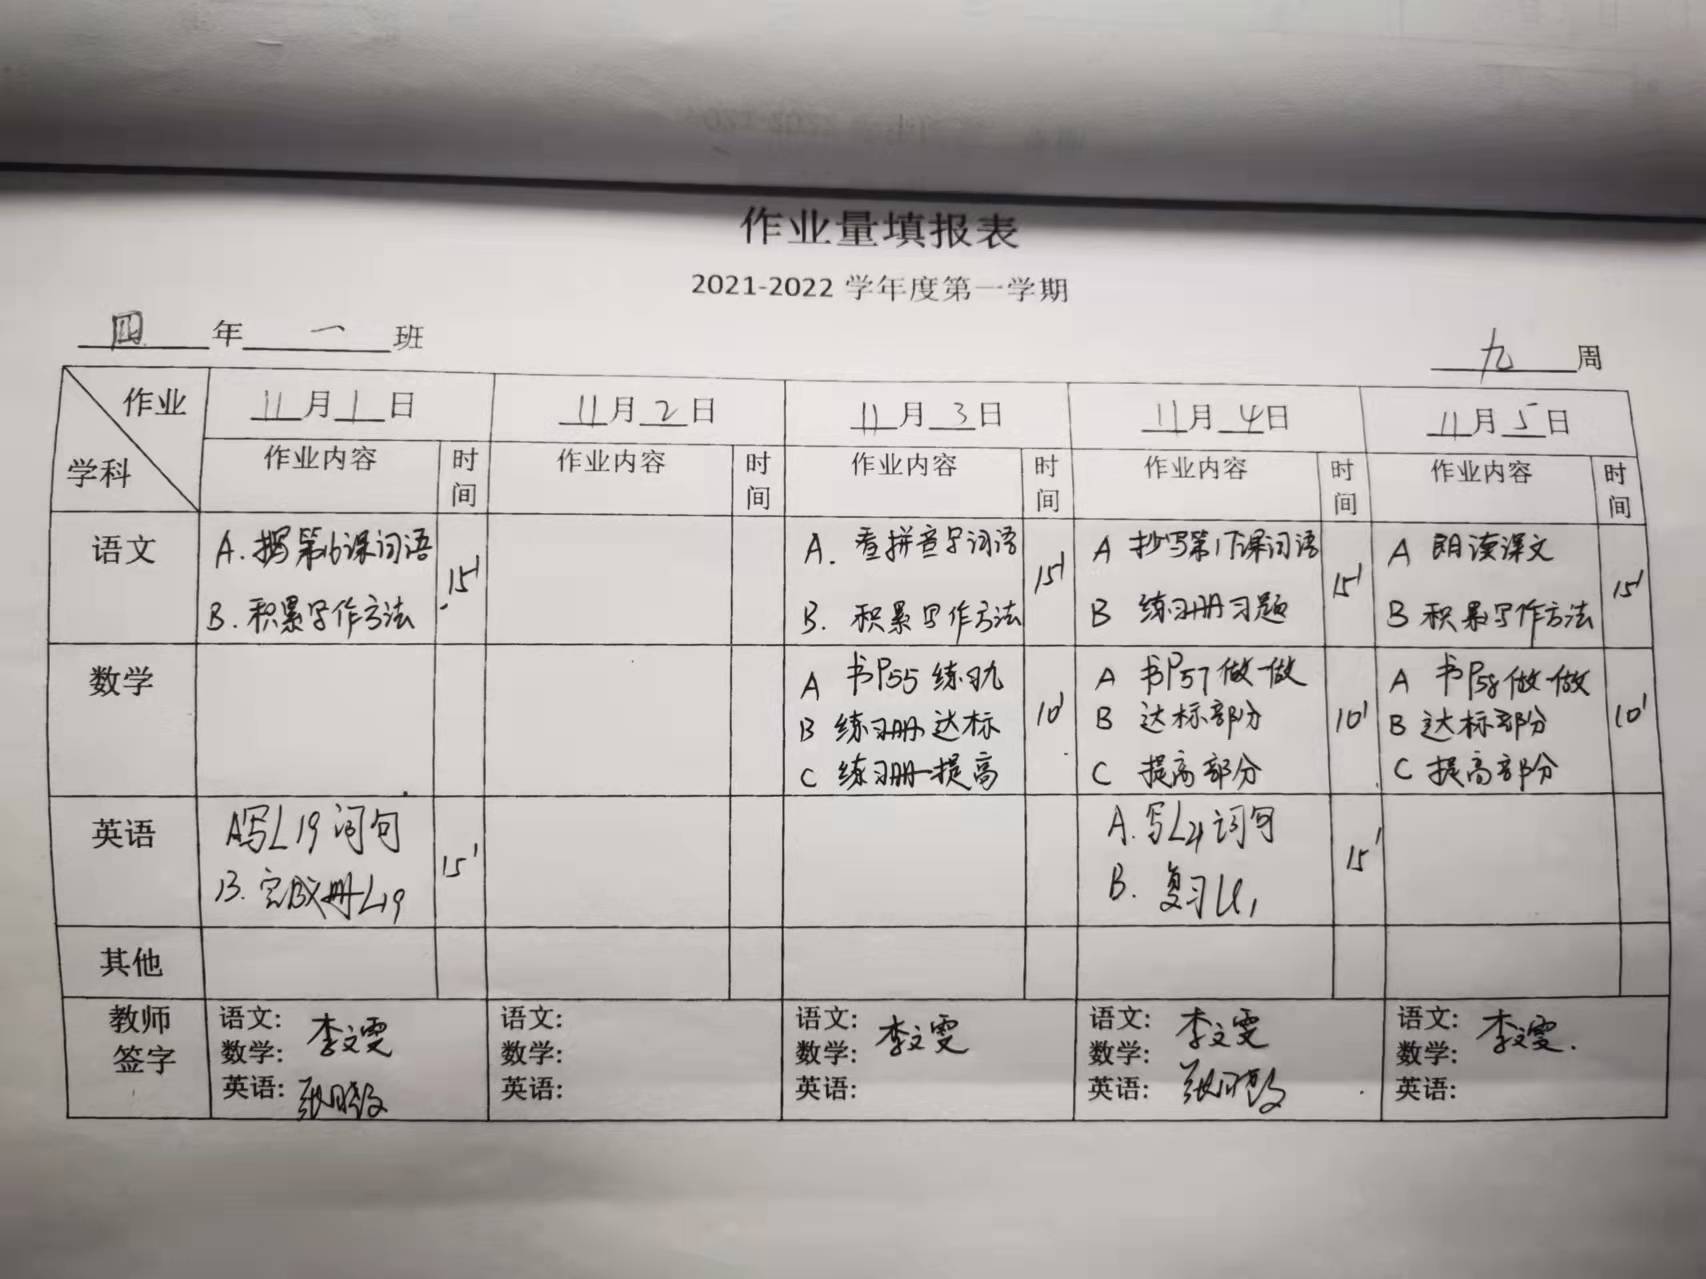 作业量填报表
2021-2022 学年度第一学期
四 年 一 班
九 周
作业
学科
11月1日
11月2日
11月3日
11月4日
11月5日
作业内容 时间
作业内容 时间
作业内容 时间
作业内容 时间
作业内容 时间
语文
A. 第16课词语
B. 积累写作方法
15'
A. 看拼音写词语
B. 积累写作方法
15'
A 抄写第17课词语
B 练习册习题
15'
A 朗读课文
B 积累写作方法
15'
数学
A 书P55 练习九
B 练习册达标
C 练习册提高
10'
A 书P57 做一做
B 达标部分
C 提高部分
10'
A 书P58 做一做
B 达标部分
C 提高部分
10'
英语
A写L19词句
B. 完成册L19
15'
A. 写L21词句
B. 复习U1
15'
其他
教师
签字
语文: 李文雯
数学:
英语:
语文:
数学:
英语:
语文: 李文雯
数学:
英语:
语文: 李文雯
数学:
英语:
语文: 李文雯.
数学:
英语: